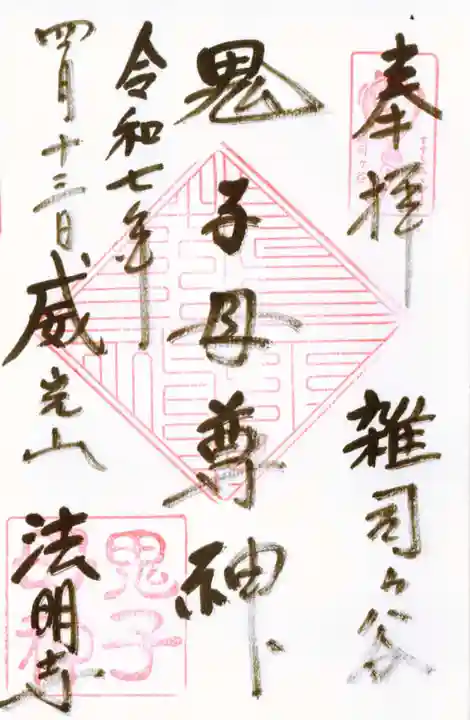 奉拝
雑司ケ谷
鬼子母尊神
令和七年
四月十三日
威光山
法明寺
鬼子
母神